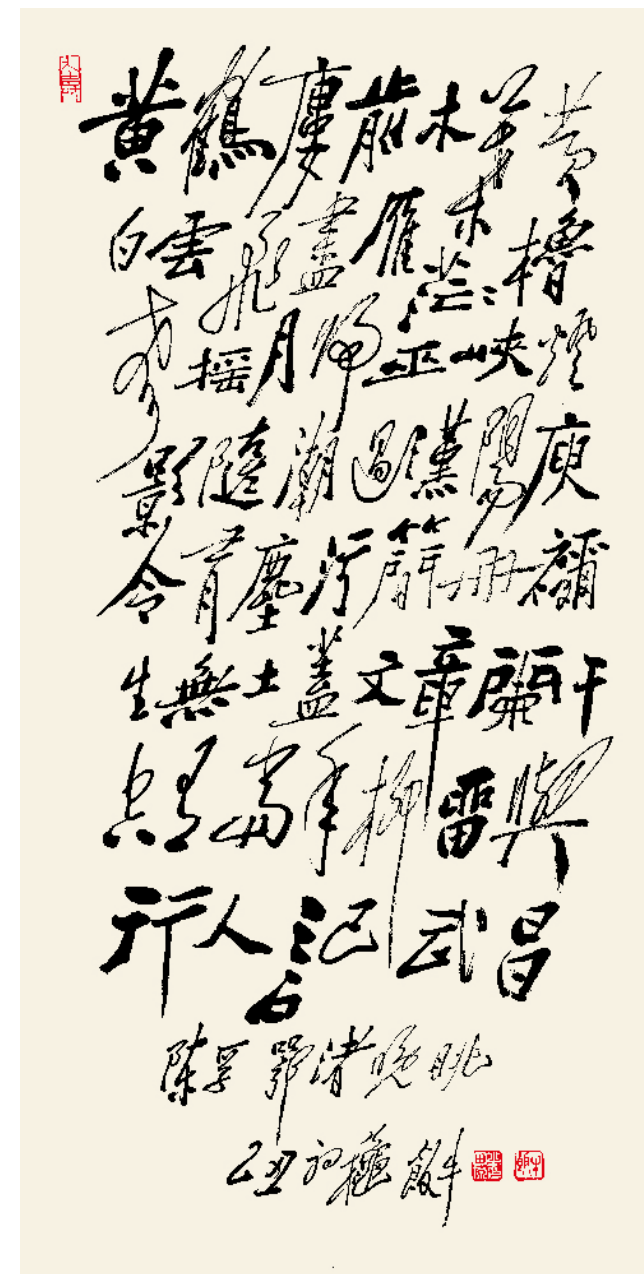 黃鶴廔前木葉黃
白雲飛盡雁茫茫櫓
聲搖月歸巫峽燈
影隨潮過漢陽庾
令有塵污簡冊禰
生無土蓋文章闌干
空有當年柳留與
行人記武昌
陳孚鄂渚晚眺
己丑初